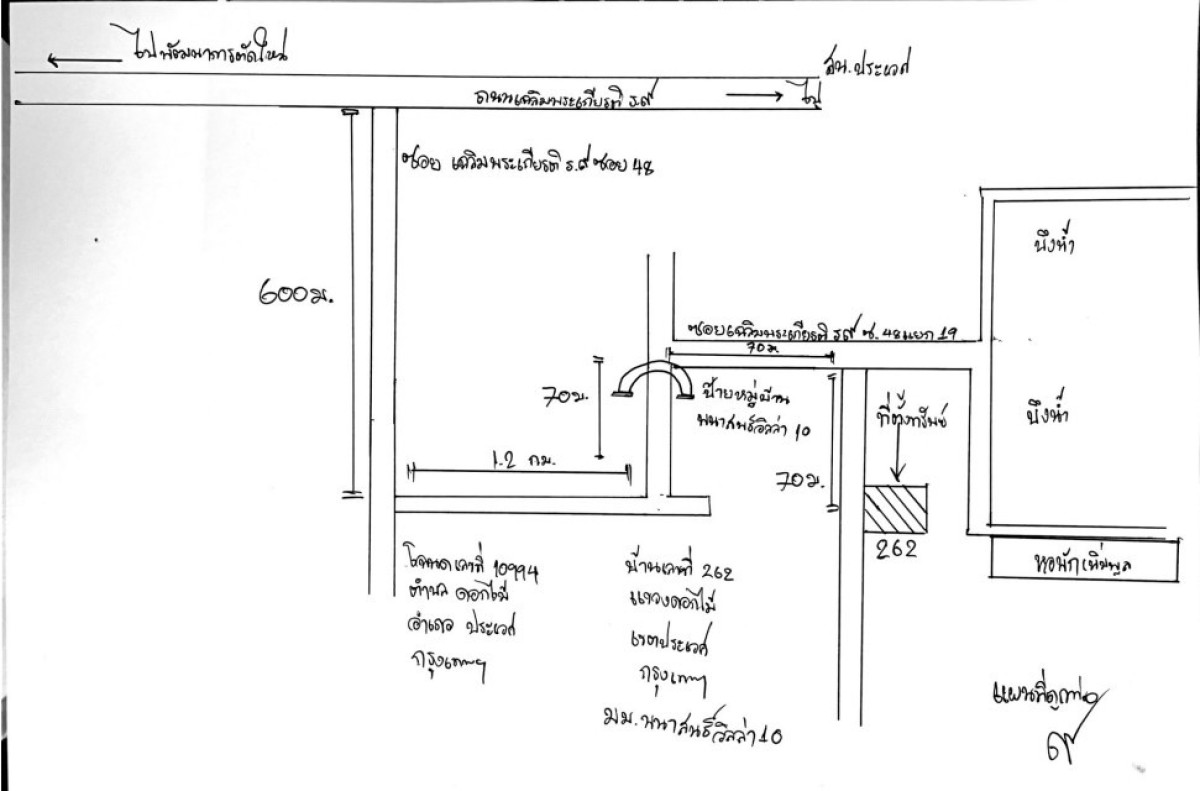 ไปพัฒนาการตัดใหม่
สน.ประเวศ
ถนนเฉลิมพระเกียรติ ร.๙
ไป
ซอย เฉลิมพระเกียรติ ร.๙ ซอย 48
บึงน้ำ
600 ม.
ซอยเฉลิมพระเกียรติ ร.๙ ซ. 48 แยก 19
70 ม.
70 ม.
ป้ายหมู่บ้าน
พนาสนธิ์วิลล่า 10
ที่ตั้งทรัพย์
บึงน้ำ
1.2 กม.
70 ม.
262
โฉนดเลขที่ 10994
ตำบล ดอกไม้
อำเภอ ประเวศ
กรุงเทพฯ
บ้านเลขที่ 262
แขวงดอกไม้
เขตประเวศ
กรุงเทพฯ
มบ.พนาสนธิ์วิลล่า 10
หอพักเพิ่มพูล
แผนที่ถูกต้อง